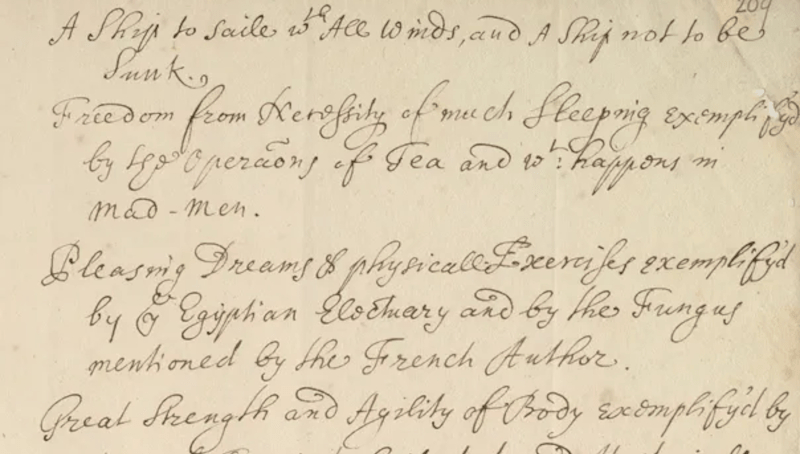 209
A Ship to saile wth All Winds, and A Ship not to be
Sunk.
Freedom from Necessity of much Sleeping exemplify'd
by the Operaõns of Tea and wt: happens in
mad-men.
Pleasing Dreams & physicall Exercises exemplify'd
by ye Egyptian Electuary and by the Fungus
mentioned by the French Author.
Great Strength and Agility of Body exemplify'd by